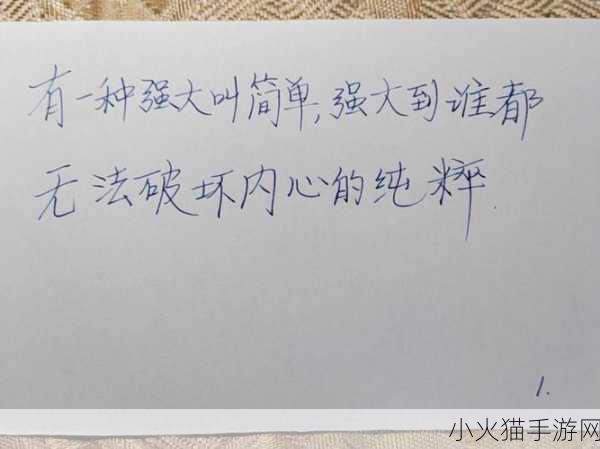 有一种强大叫简单,强大到谁都
无法破坏内心的纯粹
1.
小火猫手游网